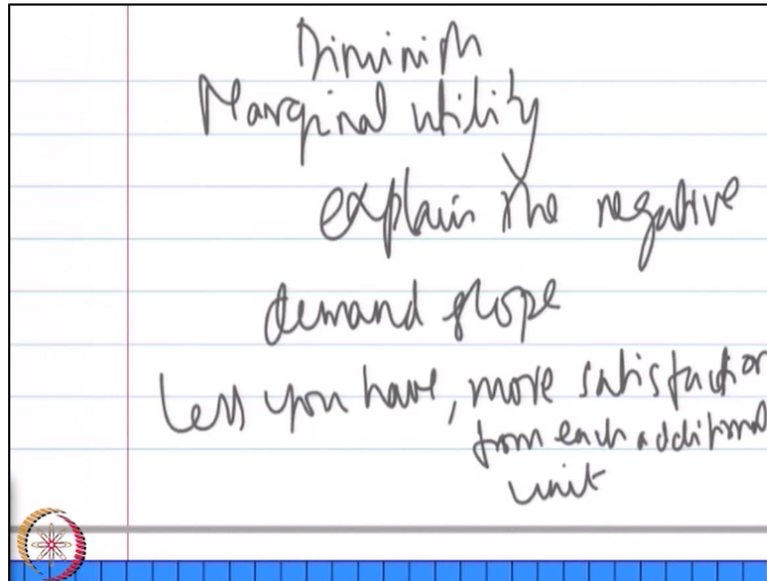 Diminish
Marginal utility
explain the negative
demand slope
Less you have, more satisfaction
from each additional
unit